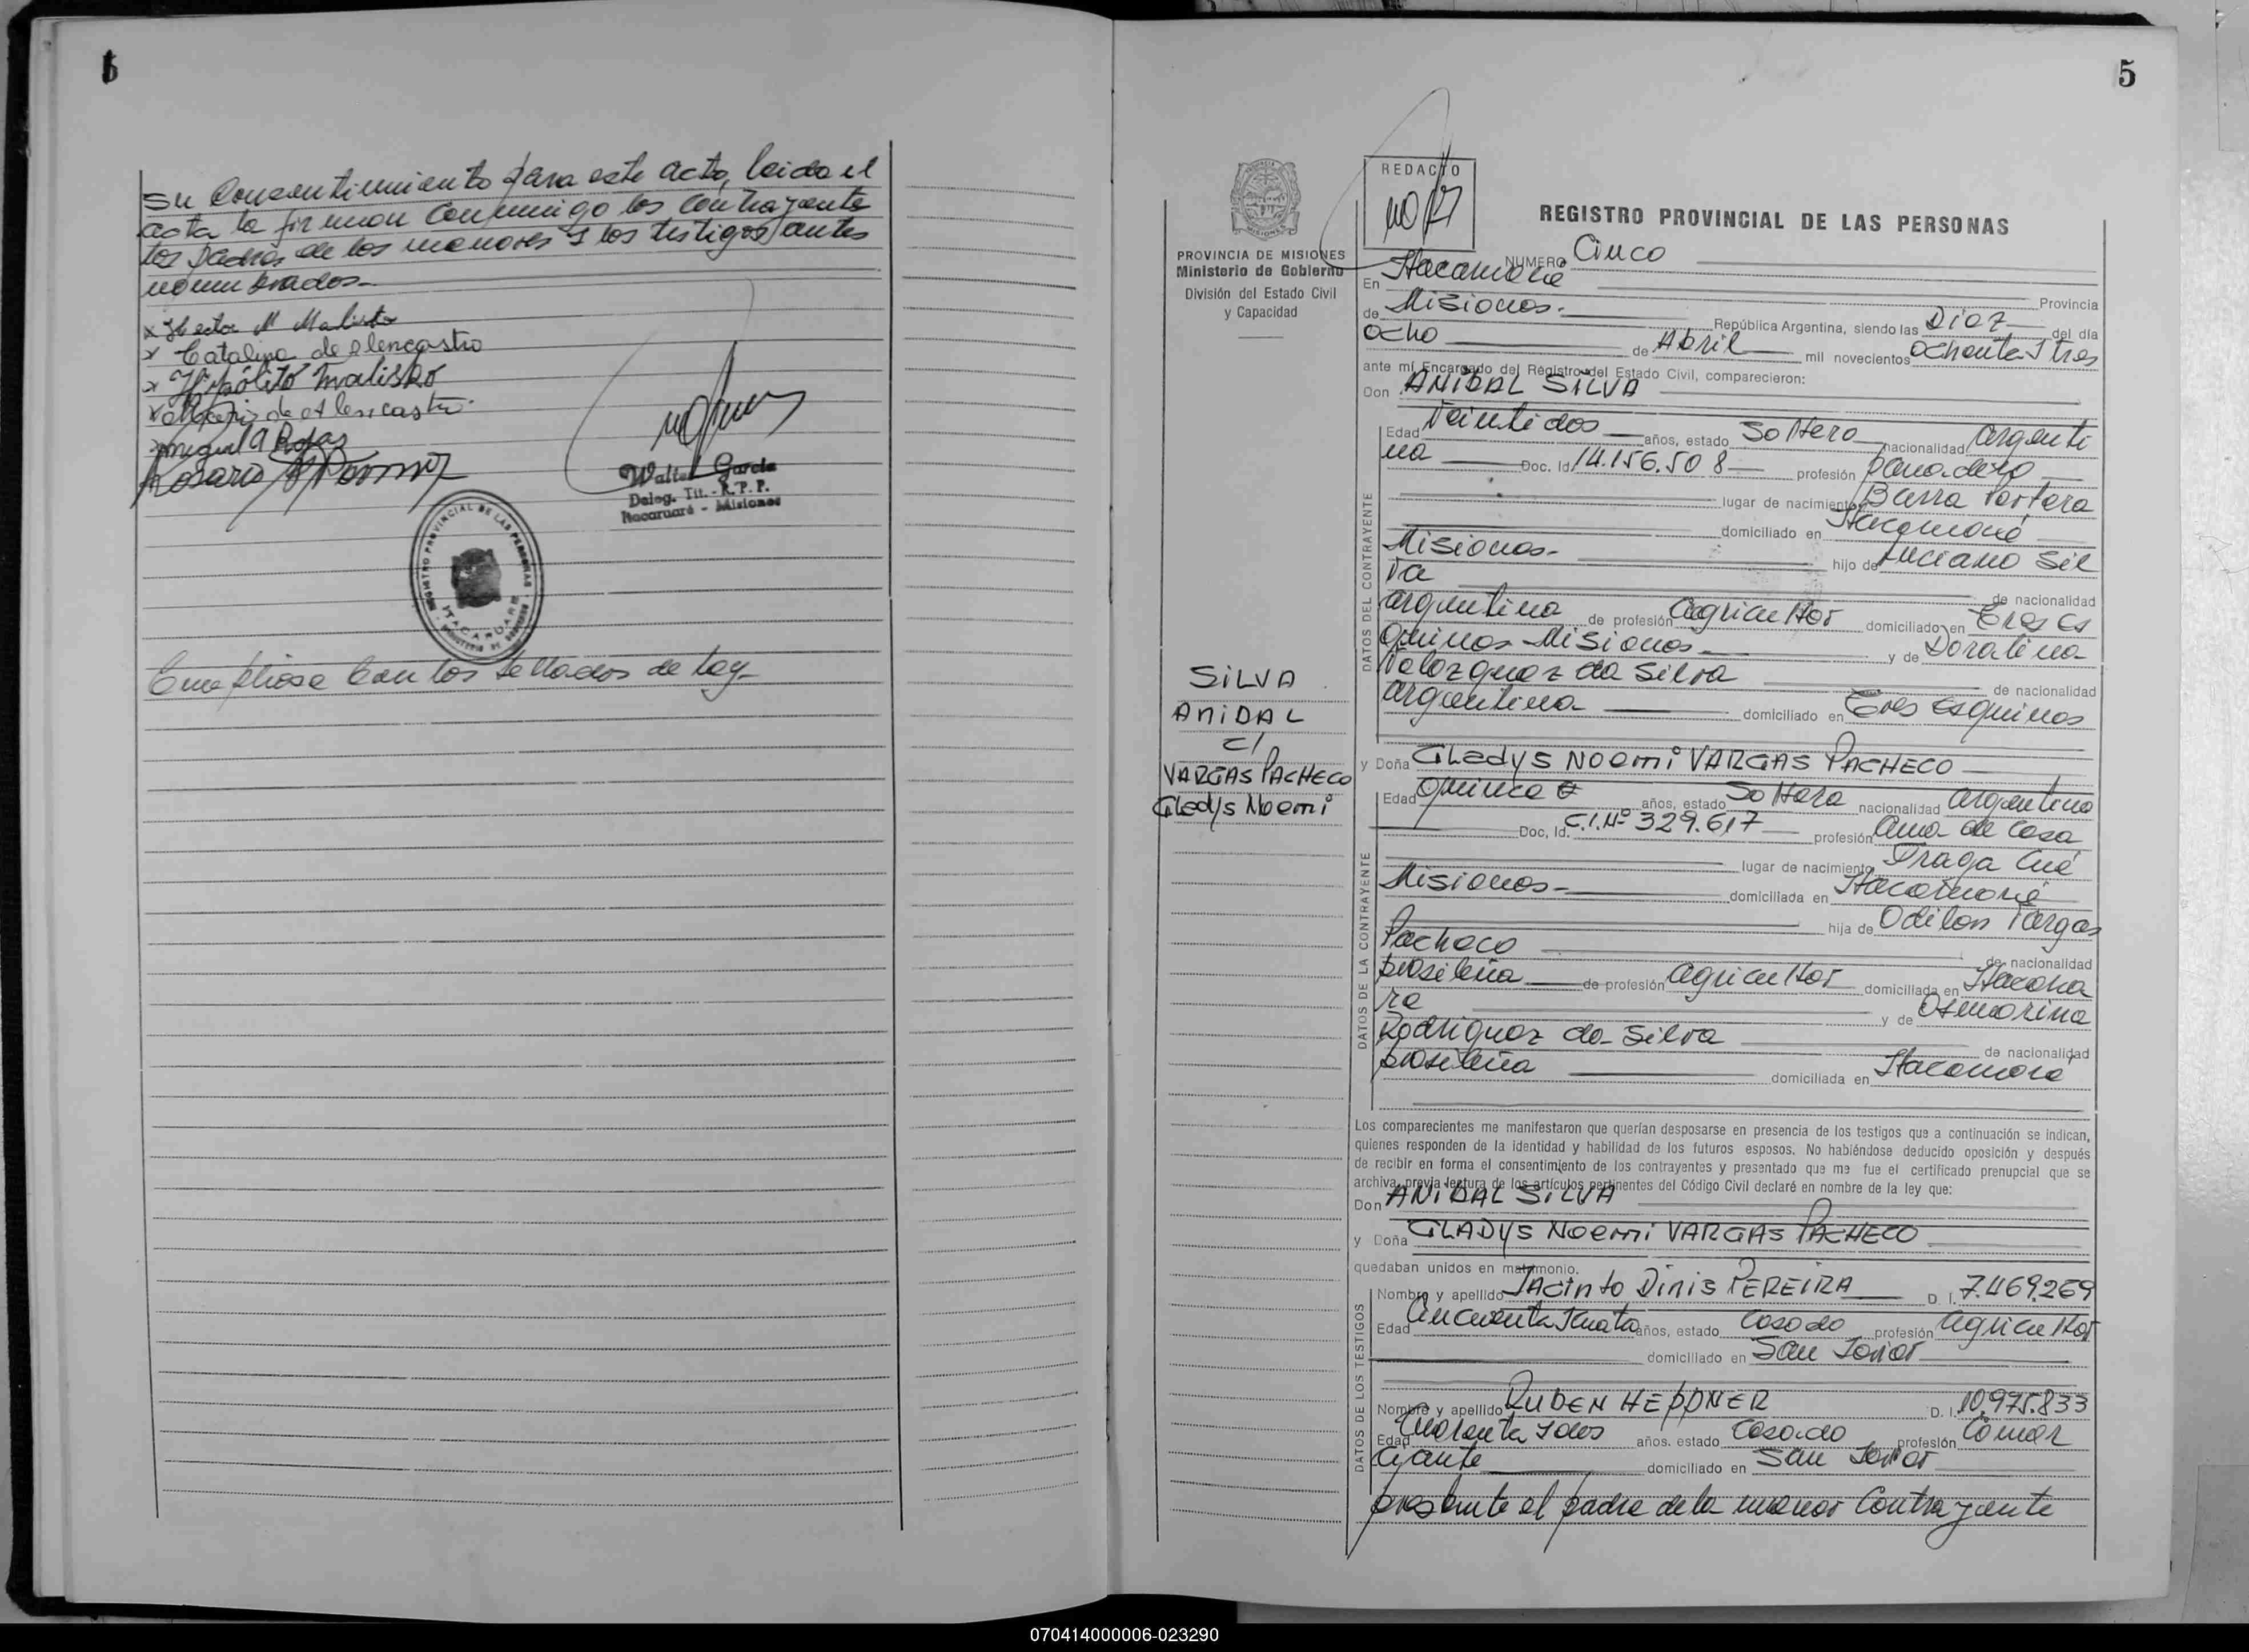 su consentimiento para este acto, leida el
acta la firman conmigo los contrayente
los padres de los menores y los testigos antes
nombrados.-
x Hector M Malisko
x Catalina de Alencastro
x Hipólito Malisko
de Alencastro.
Miguel A Rojas
Rosario
Walter Garcia
Deleg. Tit. - R.P.P.
Itacaruaré - Misiones
REGISTRO PROVINCIAL DE LAS PERSONAS
ITACARUARE
Cumpliose con los sellados de ley-
5
REDACTO
REGISTRO PROVINCIAL DE LAS PERSONAS
PROVINCIA DE MISIONES
Ministerio de Gobierno
División del Estado Civil
y Capacidad
NUMERO Cinco
En Itacaruaré
Provincia
de Misiones. República Argentina, siendo las Diez del día
ocho de Abril mil novecientos ochenta y tres
ante mí Encargado del Registro del Estado Civil, comparecieron:
Don ANIBAL SILVA
DATOS DEL CONTRAYENTE
Edad Veintidos años, estado Soltero nacionalidad argenti
na Doc. Id. 14.156.508 profesión panadero
lugar de nacimiento Barra Portera
domiciliado en Itacaruaré
Misiones- hijo de Luciano Sil
va de nacionalidad
argentina de profesión agricultor domiciliado en Tres es
quinas Misiones y de Doralina
Velozquez da Silva de nacionalidad
argentina domiciliado en Tres Esquinas
SILVA
ANIBAL
c/
VARGAS PACHECO
Gladys Noemi
y Doña Gladys Noemi VARGAS PACHECO
DATOS DE LA CONTRAYENTE
Edad quince años, estado Soltera nacionalidad argentina
Doc. Id. C.I.Nº 329.617 profesión ama de casa
lugar de nacimiento Fraga Cué
Misiones- domiciliada en Itacaruaré
hija de Odilon Vargas
Pacheco de nacionalidad
brasileña de profesión agricultor domiciliada en Itacarua
re y de Osmarina
Rodriguez da Silva de nacionalidad
brasileña domiciliada en Itacaruaré
Los comparecientes me manifestaron que querían desposarse en presencia de los testigos que a continuación se indican,
quienes responden de la identidad y habilidad de los futuros esposos. No habiéndose deducido oposición y después
de recibir en forma el consentimiento de los contrayentes y presentado que me fue el certificado prenupcial que se
archiva, previa lectura de los artículos pertinentes del Código Civil declaré en nombre de la ley que:
Don ANIBAL SILVA
y Doña GLADYS Noemi VARGAS PACHECO
quedaban unidos en matrimonio.
DATOS DE LOS TESTIGOS
Nombre y apellido JACINTO DINIS PEREIRA D. I. 7.469.269
Edad años, estado casado profesión agricultor
domiciliado en San Javier
Nombre y apellido RUBEN HEPPNER D. I. 10.975.833
Edad Cuarenta y dos años. estado casado profesión Comer
ciante domiciliado en San Javier
presente el padre de la menor contrayente
070414000006-023290